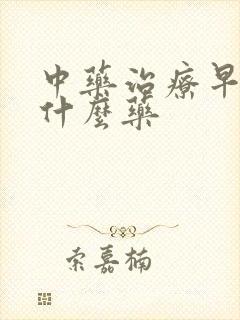 中藥治療早
什麼藥
索嘉楠